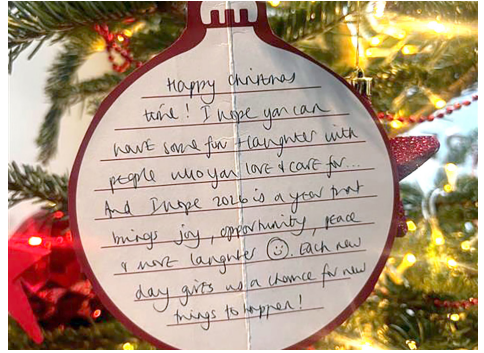 Happy Christmas
time! I hope you can
have some fun + laughter with
people who you love & care for...
And I hope 2026 is a year that
brings joy, opportunity, peace
& more laughter ☺. Each new
day gifts us a chance for new
things to happen!